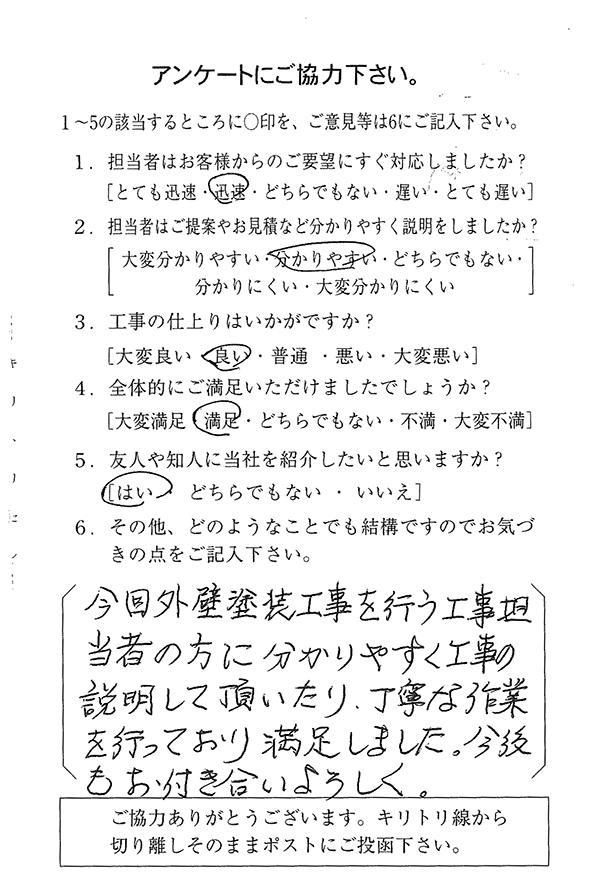 アンケートにご協力下さい。
1～5の該当するところに〇印を、ご意見等は6にご記入下さい。
1．担当者はお客様からのご要望にすぐ対応しましたか？
［とても迅速・迅速・どちらでもない・遅い・とても遅い］
2．担当者はご提案やお見積など分かりやすく説明をしましたか？
［大変分かりやすい・分かりやすい・どちらでもない・
分かりにくい・大変分かりにくい］
3．工事の仕上りはいかがですか？
［大変良い・良い・普通・悪い・大変悪い］
4．全体的にご満足いただけましたでしょうか？
［大変満足・満足・どちらでもない・不満・大変不満］
5．友人や知人に当社を紹介したいと思いますか？
［はい・どちらでもない・いいえ］
6．その他、どのようなことでも結構ですのでお気づ
きの点をご記入下さい。
今回外壁塗装工事を行う工事担
当者の方に分かりやすく工事の
説明して頂いたり、丁寧な作業
を行っており満足しました。今後
もお付き合いよろしく。
ご協力ありがとうございます。キリトリ線から
切り離しそのままポストにご投函下さい。